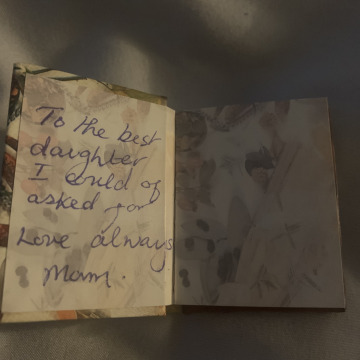 To the best
daughter
I could of
asked for
Love always
Mam.